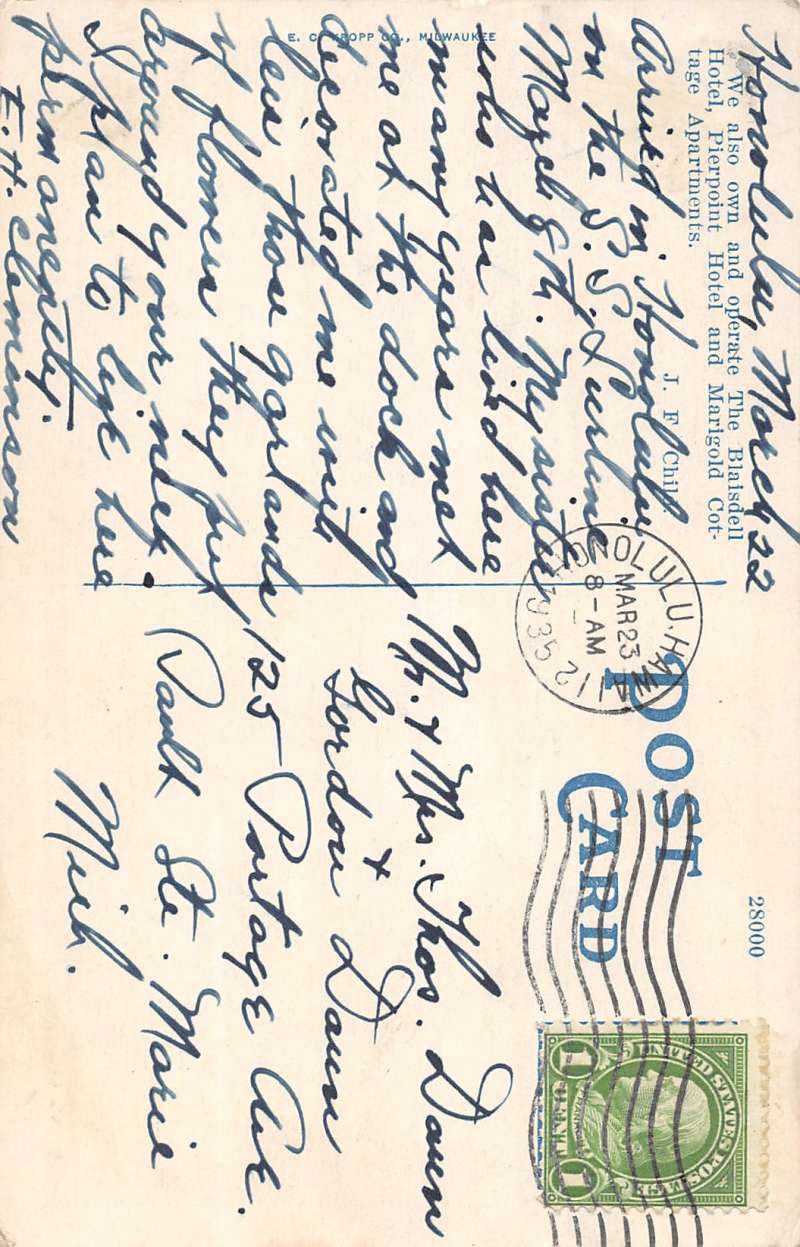 Honolulu, March 22
We also own and operate The Blaisdell
Hotel, Pierpoint Hotel and Marigold Cot-
tage Apartments.
J. F. Child.
Arrived in Honolulu
on the S. S. Lurline
March 8th. My sister
who has lived here
many years met
me at the dock and
decorated me with
leis those garlands
of flowers they put
around your neck.
I plan to live here
permanently.
E. H. Clemenson
E. C. KROPP CO., MILWAUKEE
POST
CARD
28000
HONOLULU, HAWAII
MAR 23
8-AM
1935
12
UNITED STATES POSTAGE
1 CENT 1
Mr. & Mrs. Thos. Dawn
&
Gordon Dawn
125 Portage Ave.
Sault Ste. Marie
Mich.